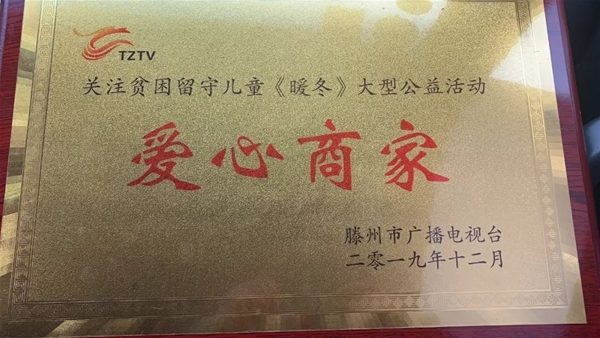 TZTV
关注贫困留守儿童《暖冬》大型公益活动
爱心商家
滕州市广播电视台
二零一九年十二月